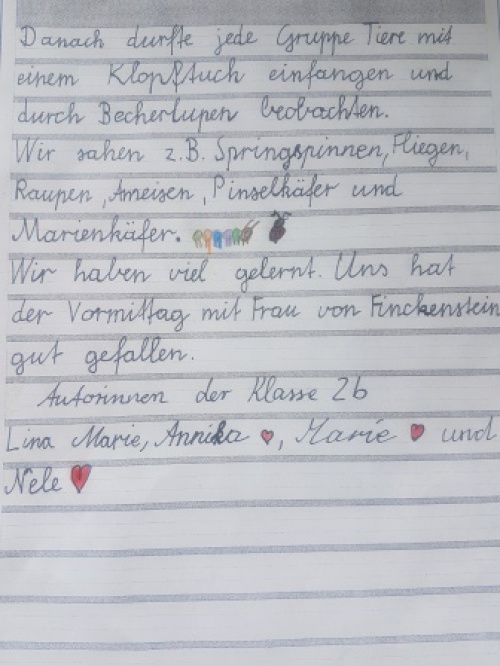 Danach durfte jede Gruppe Tiere mit
einem Klopftuch einfangen und
durch Becherlupen beobachten.
Wir sahen z.B. Springspinnen, Fliegen,
Raupen, Ameisen, Pinselkäfer und
Marienkäfer.
Wir haben viel gelernt. Uns hat
der Vormittag mit Frau von Finckenstein
gut gefallen.
Autorinnen der Klasse 2b
Lina Marie, Annika ♥, Marie ♥ und
Nele ♥